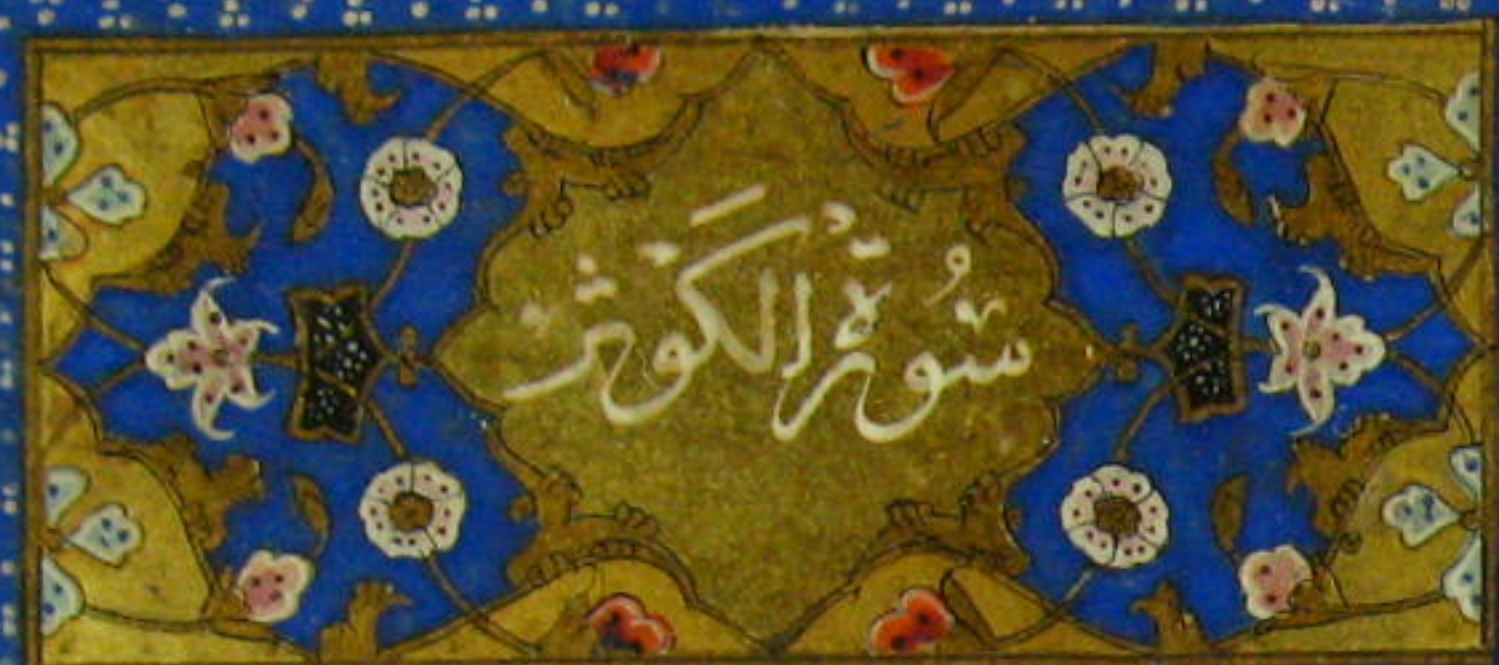 سُورَةُ الْكَوْثَرْ